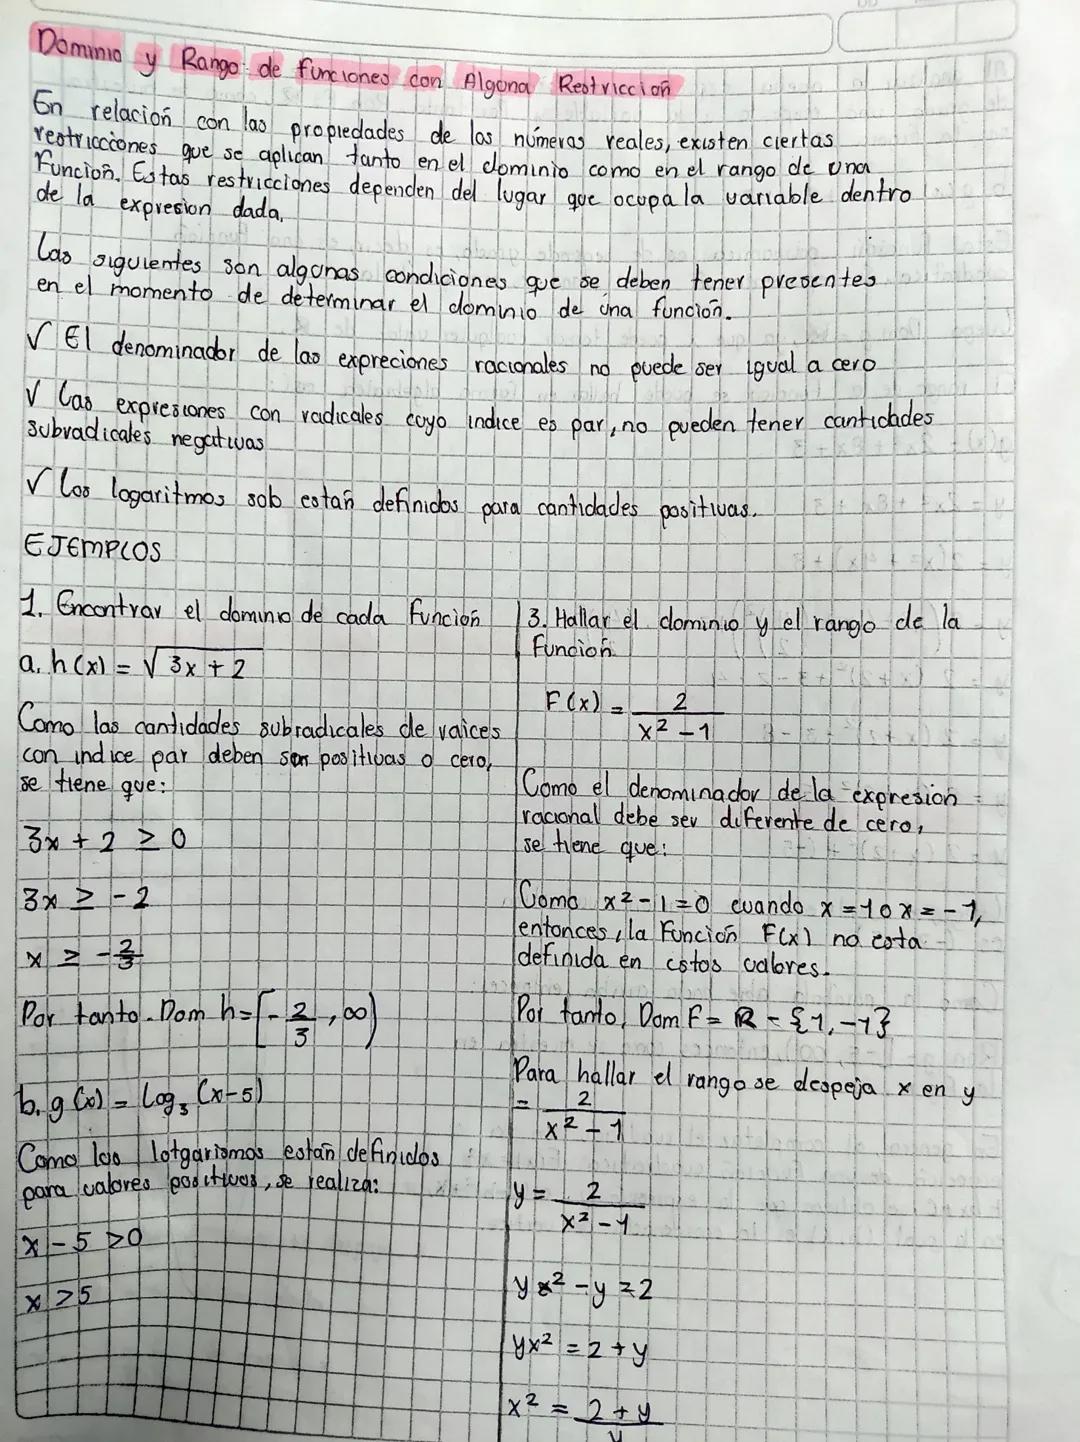 Dominio y Rango de funciones con Alguna Restricción
En relación con las propiedades de los números reales, existen ciertas
restricciones que se aplican tanto en el dominio como en el rango de una
Función. Estas restricciones dependen del lugar que ocupa la variable dentro
de la expresion dada.
Las siguientes son algunas condiciones que se deben tener presentes
en el momento de determinar el dominio de una función.
√ El denominador de las expreciones racionales no puede ser igual a cero
√ Las expresiones con radicales cuyo indice es par, no pueden tener cantidades
subradicales negativas
√ Los logaritmos solo están definidos para cantidades positivas.
EJEMPLOS
1. Encontrar el dominio de cada función
a. h(x) = √3x + 2
Como las cantidades subradicales de raices
con indice par deben son positivas o cero,
se tiene que:
3x + 2 ≥ 0
3x ≥ -2
x ≥ -2/3
Por tanto. Dom h = [-2/3, ∞)
b. g(x) = Log₃ (x-5)
Como los lotgarismos están definidos
para valores positivos, se realiza:
x - 5 >0
x >5
3. Hallar el dominio y el rango de la
Función.
F(x) = 2/x² - 1
Como el denominador de la expresion
racional debe ser diferente de cero,
se tiene que:
Como x² - 1 = 0 cuando x = 1 o x = -1,
entonces, la Función F(x) no esta
definida en estos valores.
Por tanto, Dom F = ℝ - {1, -1}
Para hallar el rango se despeja x en y
= 2/x² - 1
y = 2/x² - 1
yx² - y = 2
yx² = 2 + y
x² = 2 + y/y